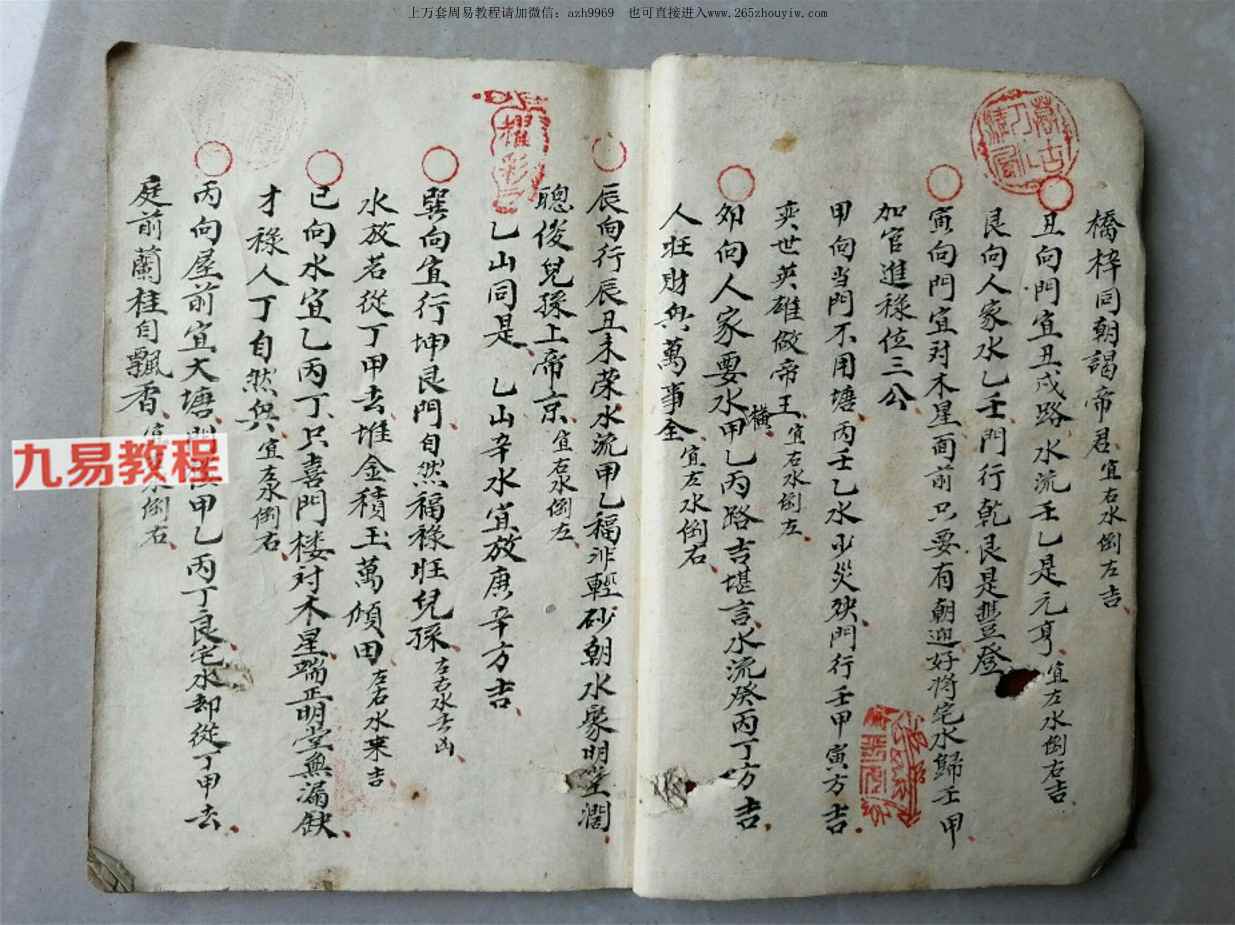 上万套周易教程请加微信：azh9969 也可直接进入www.265zhouyiw.com
橋梓同朝謁帝君宜右水倒左吉
丑向門宜丑戌路水流壬乙是元亨宜左水倒右吉
艮向人家水乙壬門行乾艮是豐登
寅向門宜对木星面前只要有朝迎好将宅水歸壬甲
加官進祿位三公
甲向当門不用塘丙壬乙水少災殃門行壬甲寅方吉
奕世英雄做帝王宜右水倒左
夘向人家要水橫甲乙丙路吉堪言水流癸丙丁方吉
人旺財興萬事全宜左水倒右
辰向行辰丑未荣水流甲乙福非輕砂朝水聚明堂濶
聰俊兒孫上帝京宜右水倒左
乙山同是乙山辛水宜放庚辛方吉
巽向宜行坤艮門自然福祿旺兒孫左右水去凶
水放若從丁甲去堆金積玉萬傾田左右水来吉
巳向水宜乙丙丁只喜門楼对木星端正明堂無漏缺
才祿人丁自然興宜左水倒右
丙向屋前宜大塘門甲乙丙丁良宅水却從丁甲去
庭前蘭桂自飄香宜水倒右
耀彩
九易教程